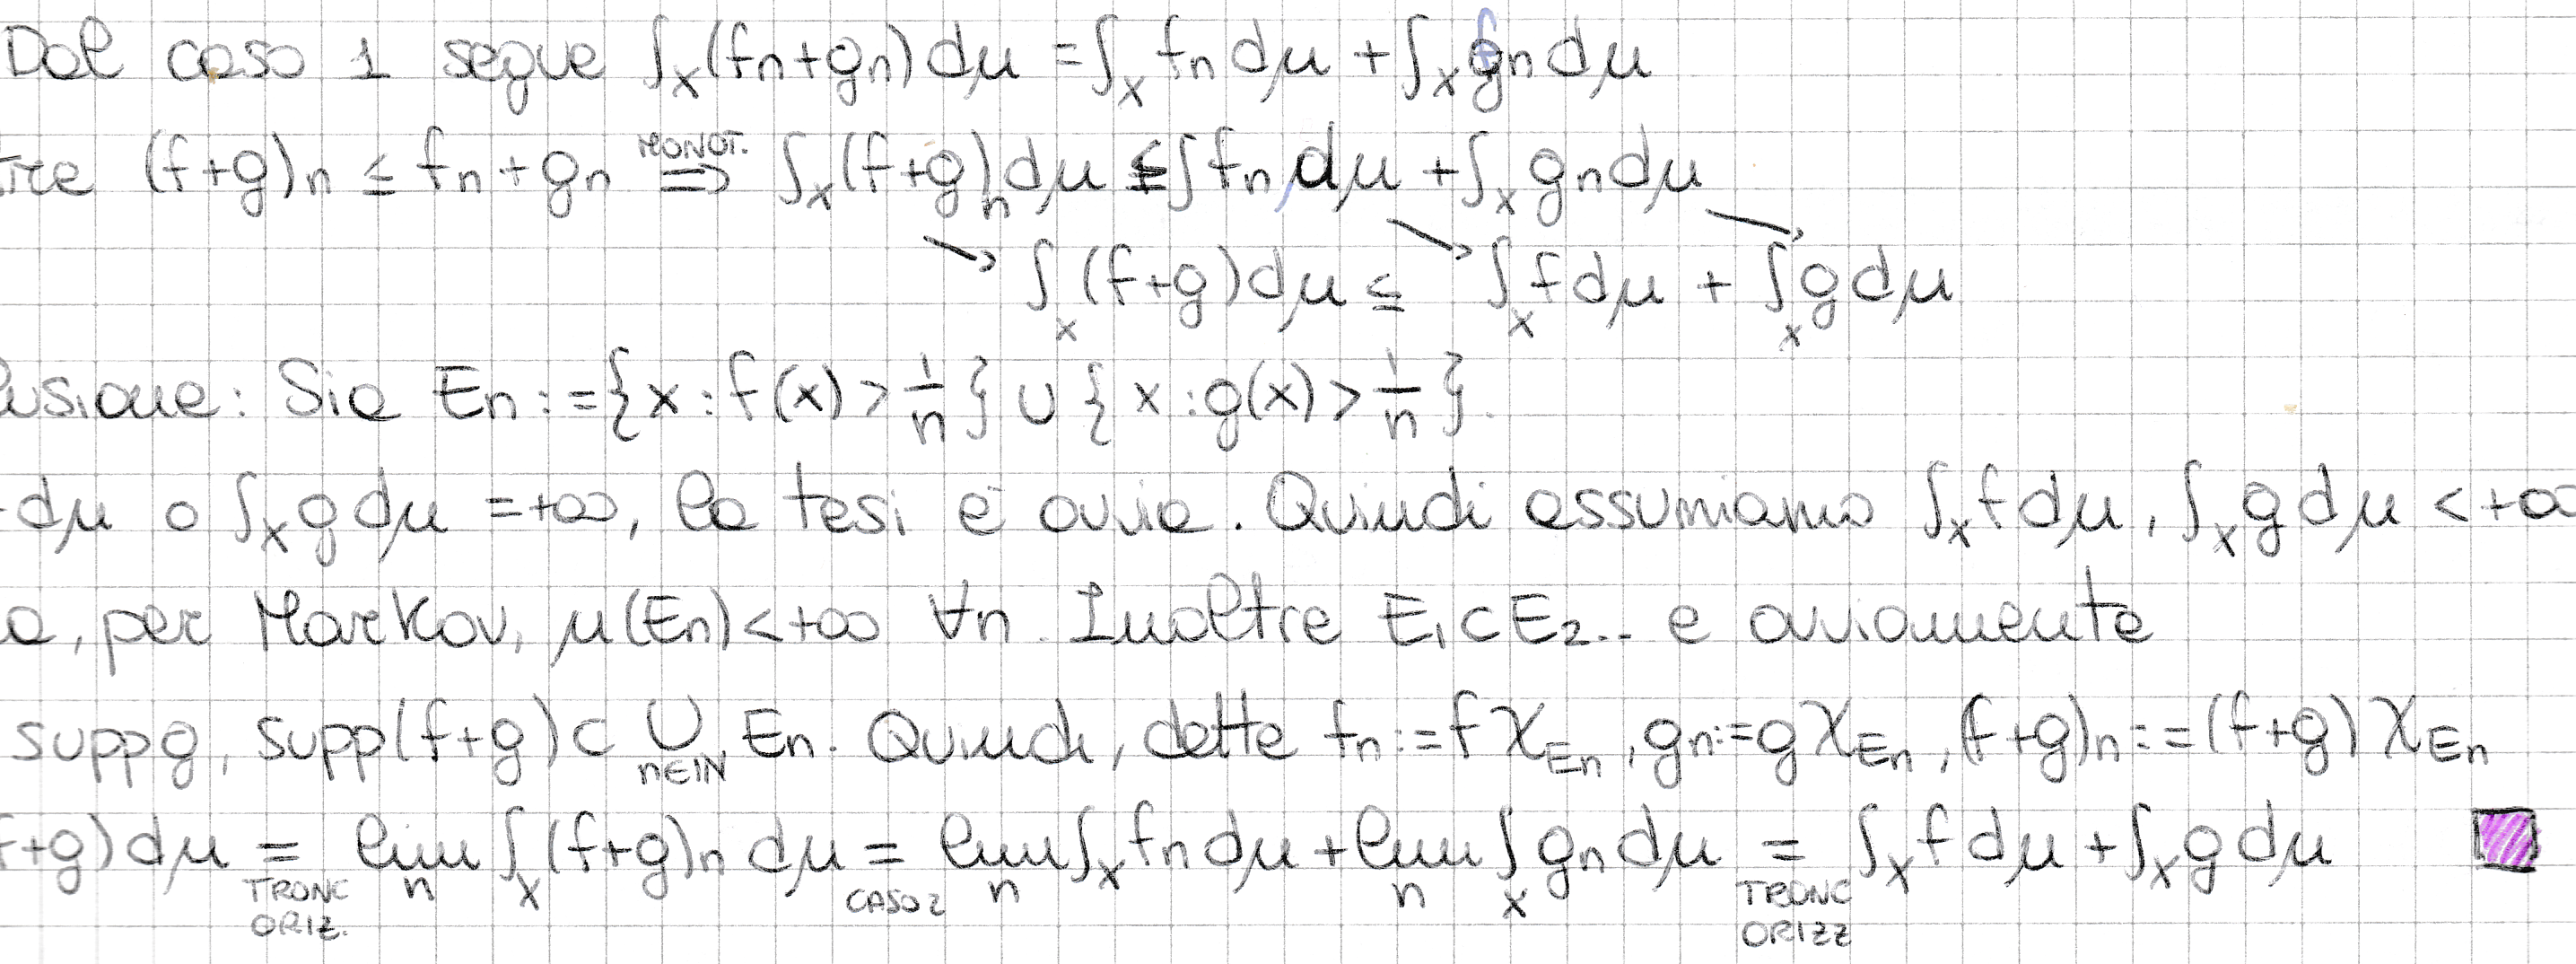 Dal caso 1 segue ∫_X (fn+gn) dμ = ∫_X fn dμ + ∫_X gn dμ
tre (f+g)n ≤ fn + gn ⟹ MONOT. ∫_X (f+g)n dμ ≤ ∫ fn dμ + ∫_X gn dμ
→ ∫_X (f+g) dμ ≤ → ∫_X f dμ + → ∫_X g dμ
usione: Sia En := {x : f(x) > 1/n} ∪ {x : g(x) > 1/n}.
dμ o ∫_X g dμ = +∞, la tesi è ovvia. Quindi assumiamo ∫_X f dμ, ∫_X g dμ < +∞
a, per Markov, μ(En) < +∞ ∀n. Inoltre E1 ⊂ E2... e ovviamente
supp g, supp(f+g) ⊂ ∪_{n∈ℕ} En. Quindi, dette fn := f χ_En, gn := g χ_En, (f+g)n := (f+g) χ_En
f+g) dμ = TRONC ORIZ. lim_n ∫_X (f+g)n dμ = CASO 2 lim_n ∫_X fn dμ + lim_n ∫_X gn dμ = TRONC ORIZZ ∫_X f dμ + ∫_X g dμ